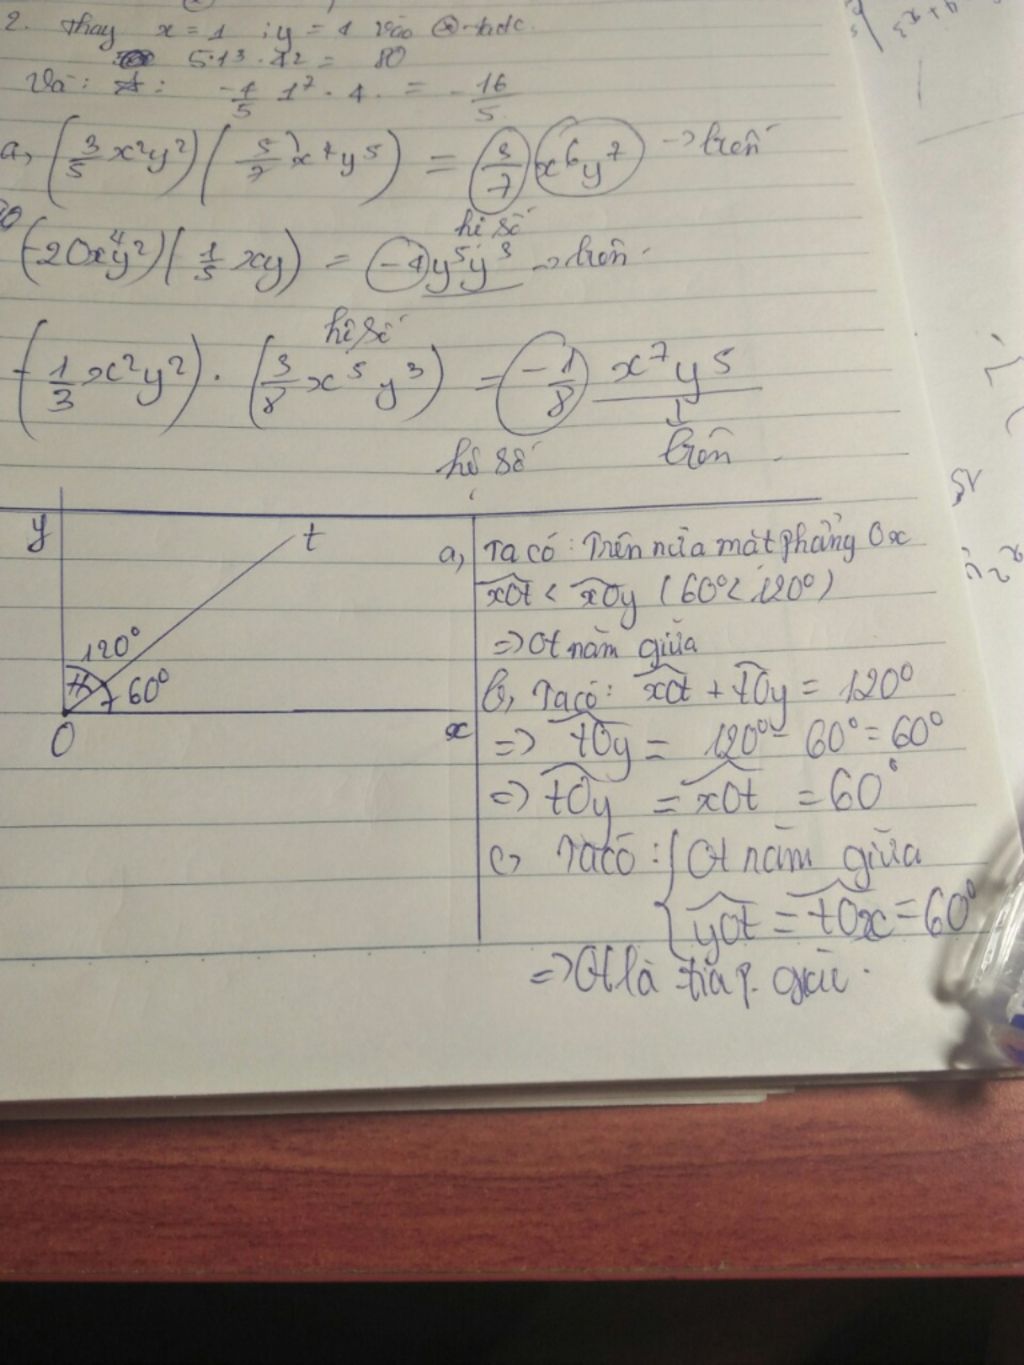 2. thay x = 1 ; y = 4 vào
5.1³.4² = 80
Và: -1/5 1⁷ . 4 . = - 16/5
a, (3/5 x²y²) ( 5/7 x⁴y⁵) = 3/7 x⁶y⁷ → biến
hệ số
(-20x⁴y²) ( 1/5 xy) = -4y⁵y³ → biến
hệ số
(-1/3 x²y²) . (3/8 x⁵y³) = -1/8 x⁷y⁵
hệ số biến
y t
120°
60°
O x
a, Ta có: Trên nửa mặt phẳng Ox
xOt < xOy (60° < 120°)
=> Ot nằm giữa
b, Ta có: xOt + tOy = 120°
=> tOy = 120° - 60° = 60°
=> tOy = xOt = 60°
c, Ta có: { Ot nằm giữa
yOt = tOx = 60°
=> Ot là tia p. giác.